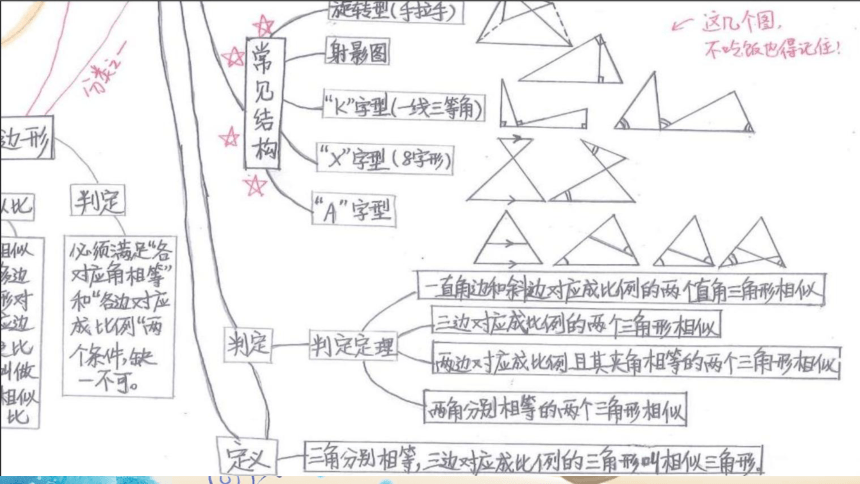 旋转型(手拉手)
射影图
"K"字型(一线三等角)
"X"字型(8字形)
"A"字型
常见结构
这几个图,
不吃饭也得记住!
分类之一
边形
判定
必须满足"各
对应角相等"
和"各边对应
成比例"两
个条件,缺
一不可。
似比
相似
边
形对
应边
比
叫做
相似
比
判定
判定定理
一直角边和斜边对应成比例的两个直角三角形相似
三边对应成比例的两个三角形相似
两边对应成比例且其夹角相等的两个三角形相似
两角分别相等的两个三角形相似
定义
三角分别相等,三边对应成比例的三角形叫相似三角形.